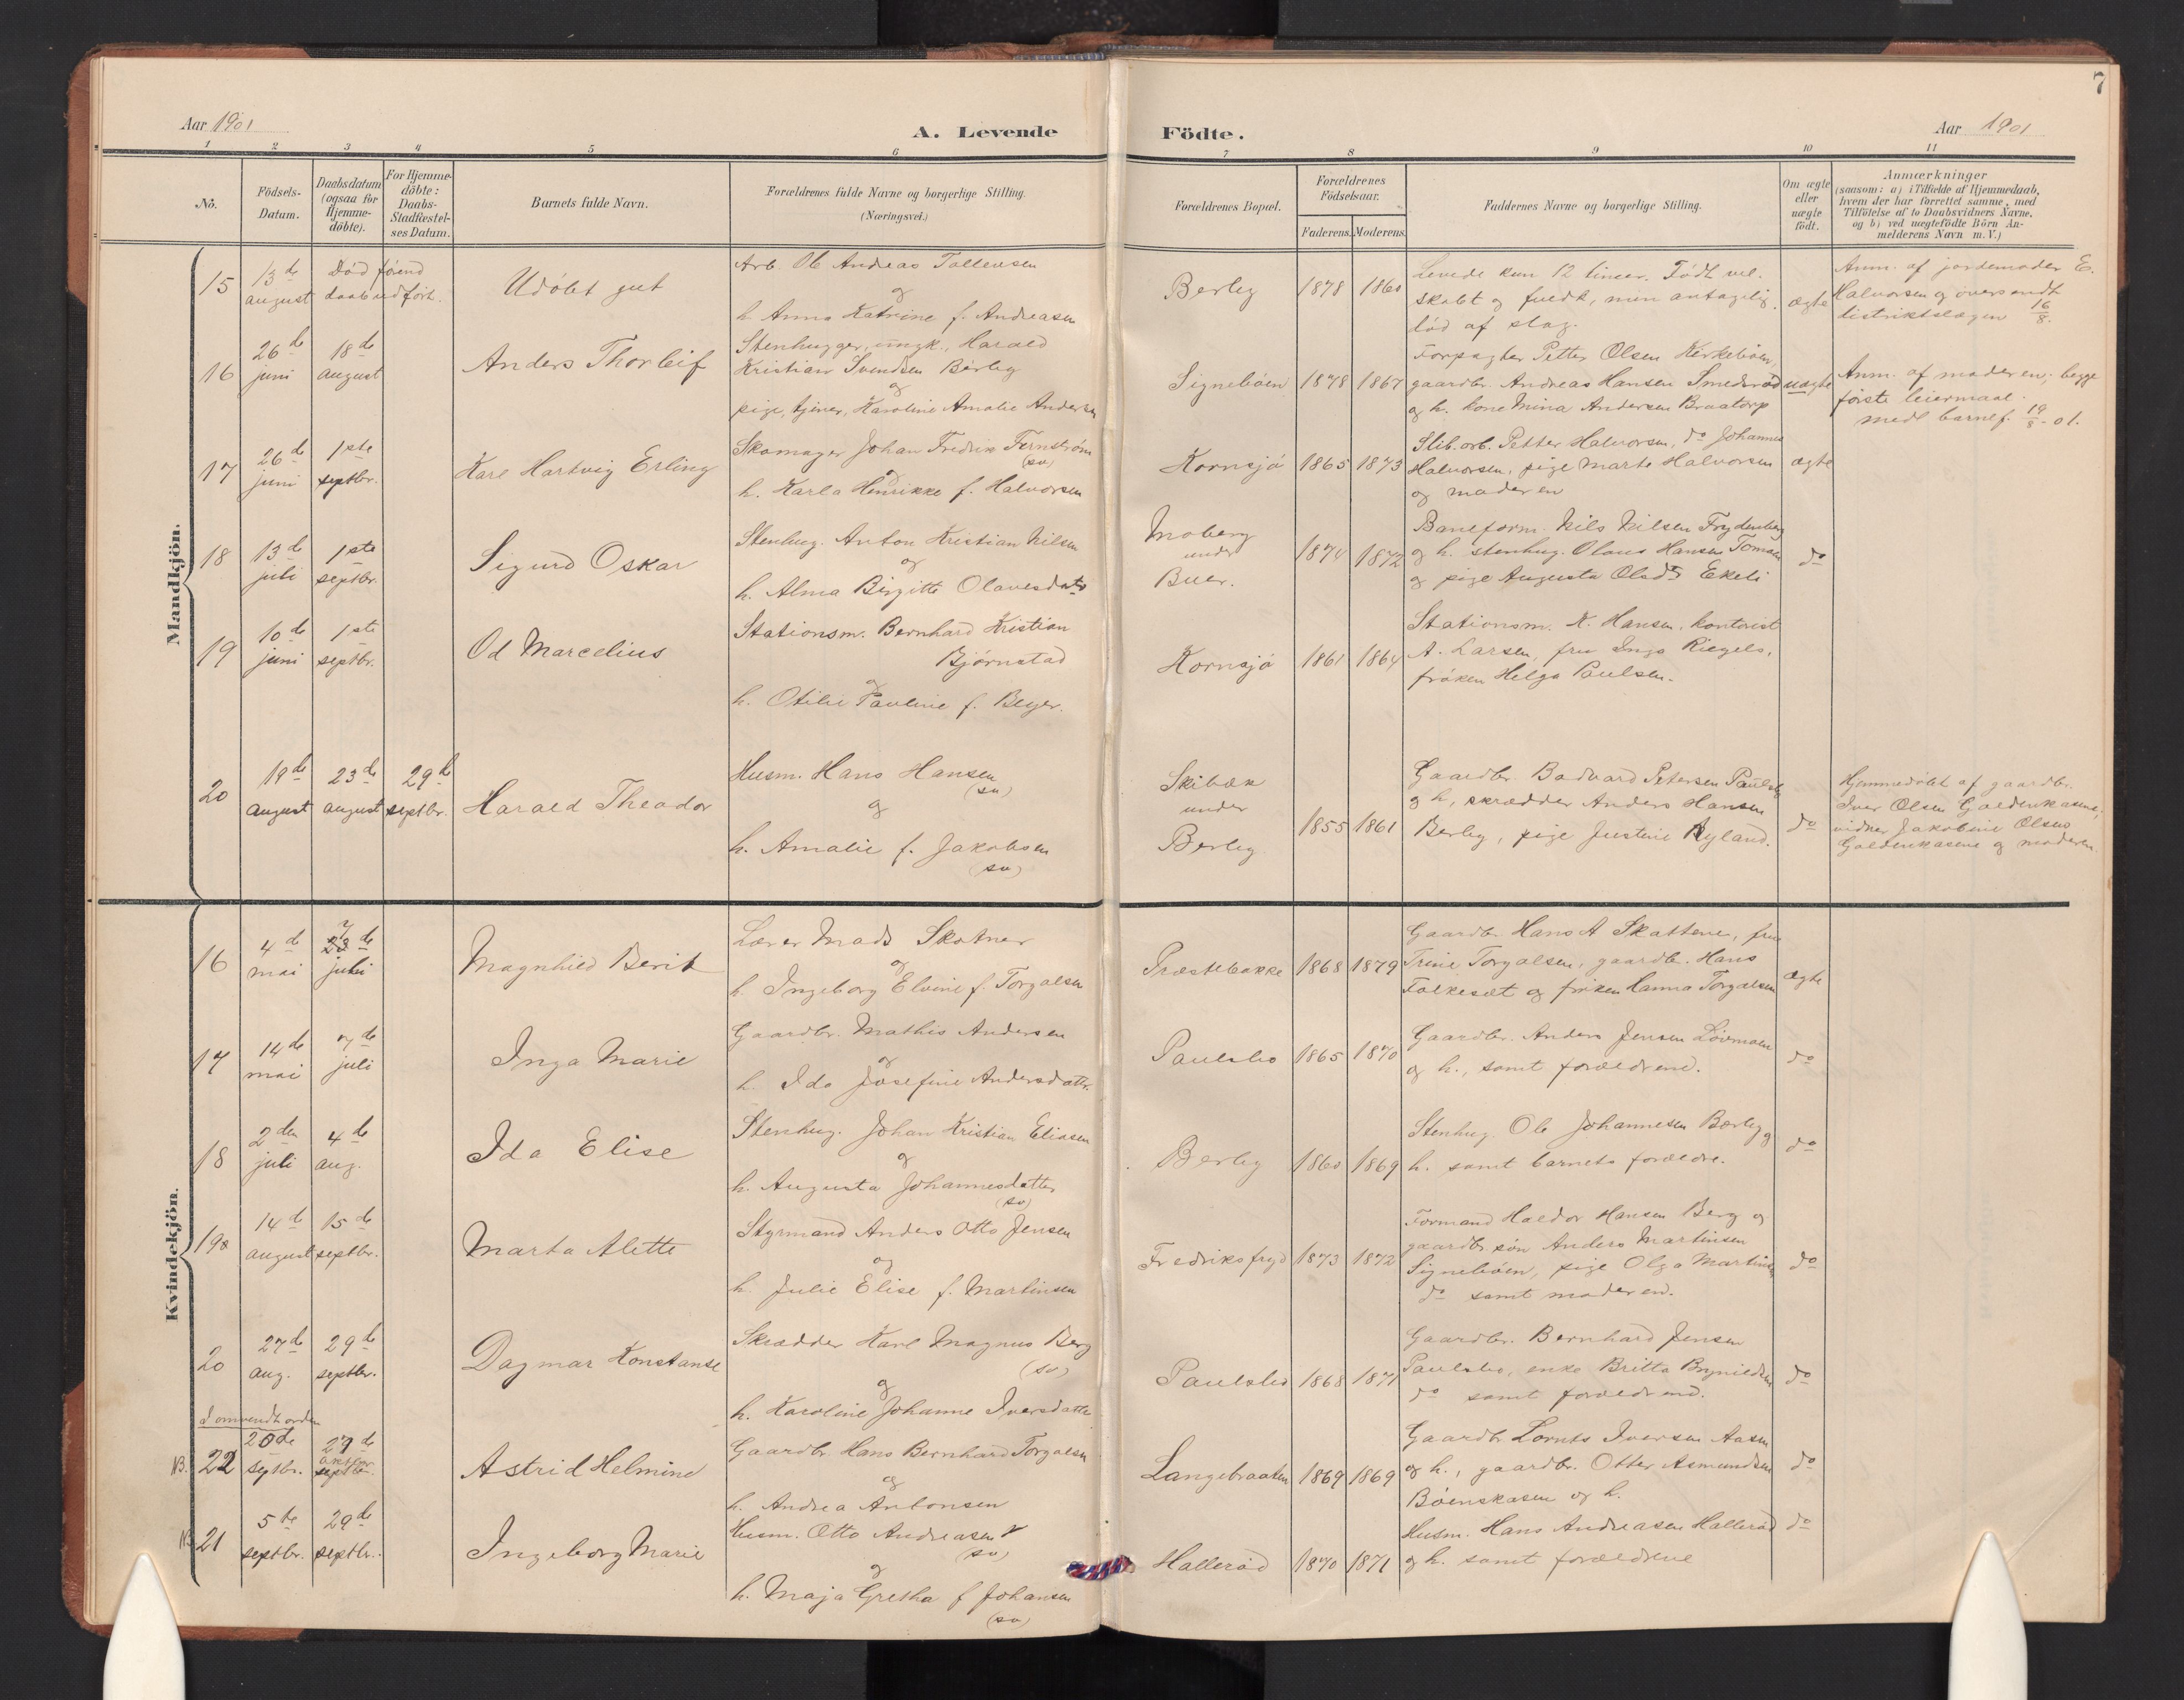 7
Aar 1901
A. Levende Födte.
Aar 1901
1 2 3 4 5 6 7 8 9 10 11
No.
Födsels-Datum.
Daabsdatum (ogsaa for Hjemme-döbte).
For Hjemme-döbte: Daabs-Stadfæstel-ses Datum.
Barnets fulde Navn.
Forældrenes fulde Navne og borgerlige Stilling.
(Næringsvei.)
Forældrenes Bopæl.
Forældrenes Födselsaar.
Faderens. Moderens.
Faddernes Navne og borgerlige Stilling.
Om ægte eller uægte födt.
Anmærkninger
(saasom: a) i Tilfælde af Hjemmedaab,
hvem der har forrettet samme, med
Tilföielse af to Daabsvidners Navne.
og b) ved uægtefödte Börn An-
melderens Navn m. V.)
Mandkjön.
15
13de august
Död förend daab udfört.
Udöbt gut
Arb. Ole Andreas Tollevsen
og
h. Anna Katrine f. Andreasen
Berby
1878 1860
Levede kun 12 timer. Födt vel-
skabt og fuldt, men antagelig
död af slag.
ægte
Anm. af jordemoder E.
Halvorsen og oversendt
distriktslægen 16/8.
16
26de juni
18de august
Anders Thorleif
Stenhugger, ungk., Harald
Kristian Svendsen Berby
og
pige, tjener, Karoline Amalie Andersen
Signeböen
1878 1867
Forpagter Petter Olsen Kirkeböen,
gaardbr. Andreas Hansen Smedsröd
og h. kone Mina Andersen Braatorp
uægte
Anm. af moderen; begge
förste leiermaal.
medl barnef. 19/8-01.
17
26de juni
1ste septbr.
Karl Hartvig Erling
Skomager Johan Fredrik Fernström
(sv)
og
h. Karla Henrikke f. Halvorsen
Kornsjö
1865 1873
Slib.arb. Petter Halvorsen, do Johannes
Halvorsen, pige Marte Halvorsen
og moderen
ægte
18
13de juli
1ste septbr.
Sigurd Oskar
Stenhug. Anton Kristian Nilsen
og
h. Alma Birgitte Olavesdatr
Moberg
under
Buer.
1874 1872
Baneform. Nils Nilsen Frydenberg
og h. stenhug. Olaus Hansen Tomen
og pige Augusta Olsdtr Ekeli
do
19
10de juni
1ste septbr.
Od Marcelius
Stationsm. Bernhard Kristian
Björnstad
og
h. Otilie Pauline f. Beyer.
Kornsjö
1861 1864
Stationsm. K. Hansen, kontorist
A. Larsen, fru Inga Riegels,
fröken Helga Paulsen.
20
19de august
23de august
29de septbr.
Harald Theodor
Husm. Hans Hansen
(sv)
og
h. Amalie f. Jakobsen
(sv)
Skibæk
under
Berby
1855 1861
Gaardbr. Bodvard Petersen Paulsbo
og h, skrædder Anders Hansen
Berby, pige Justine Ryland.
do
Hjemmedöbt af gaardbr.
Iver Olsen Goldenkasene,
vidner Jakobine Olsen
Goldenkasene og moderen.
Kvindekjön.
16
4de mai
7de juli
Magnhild Berit
Lærer Mads Skotner
og
h. Ingeborg Elvine f. Torgalsen
Præstebakke
1868 1879
Gaardbr Hans A Skattene, frue
Trine Torgalsen, gaardbr. Hans
Folkesæt og fröken Hanna Torgalsen
ægte
17
14de mai
7de juli
Inga Marie
Gaardbr. Mathis Andersen
og
h. Ida Josefine Andersdattr.
Paulsbo
1865 1870
Gaardbr. Anders Jensen Lövmoen
og h., samt forældrene.
do
18
2den juli
4de aug.
Ida Elise
Stenhug. Johan Kristian Eliasen
og
h. Augusta Johannesdatter
(sv)
Berby
1860 1869
Stenhug. Ole Johannesen Berby og
h. samt barnets forældre.
do
19
14de august
15de septbr.
Marta Alette
Styrmand Anders Otto Jensen
og
h. Julie Elise f. Martinsen
Fredriksfryd
1873 1872
Formand Haldor Hansen Berg og
gaardbr.sön Anders Martinsen
Signeböen, pige Olga Martinsen
do samt moderen.
do
20
27de aug.
29de septbr.
Dagmar Konstanse
Skrædder Karl Magnus Berg
(sv)
og
h. Karoline Johanne Iversdatter
Paulsbo
1868 1871
Gaardbr. Bernhard Jensen
Paulsbo, enke Britta Brynildsen
do samt forældrene.
do
I omvendt orden
NB. 22
20de septbr.
27de oktbr septbr.
Astrid Helmine
Gaardbr. Hans Bernhard Torgalsen
og
h. Andrea Antonsen
Langebraaten
1869 1869
Gaardbr Lornts Iversen Aasen
og h., gaardbr. Otter Asmundsen
Böenskasen og h.
do
NB 21
5te septbr.
29de septbr.
Ingeborg Marie
Husm. Otto Andreasen
(sv)
og
h. Maja Gretha f Johansen
(sv)
Halleröd
1870 1871
Husm. Hans Andreasen Halleröd
og h. samt forældrene
do